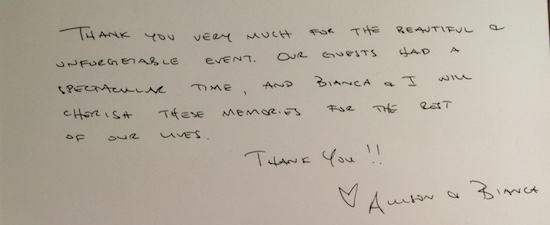 THANK YOU VERY MUCH FOR THE BEAUTIFUL &
UNFORGETABLE EVENT. OUR GUESTS HAD A
SPECTACULAR TIME, AND BIANCA & I WILL
CHERISH THESE MEMORIES FOR THE REST
OF OUR LIVES.
THANK YOU!!
♡ ALLISON & BIANCA